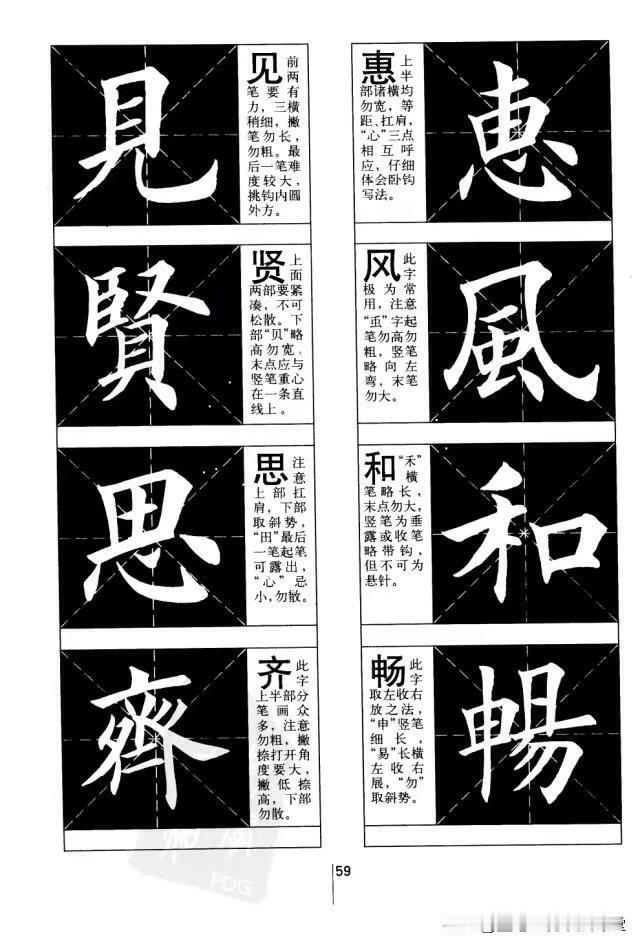 見
见前
两
笔要有
力，三横
稍细，撇
笔勿长，
勿粗。最
后一笔难
度较大，
挑钩内圆
外方。
賢
贤上
面
两部要紧
凑，不可
松散。下
部“贝”略
高勿宽，
末点应与
竖笔重心
在一条直
线上。
思
思注
意
上部扛
肩，下部
取斜势，
“田”最后
一笔起笔
可露出，
“心”忌
小，勿散。
齊
齐此
字
上半部分
笔画众
多，注意
勿粗，撇
捺打开角
度要大，
撇低捺
高，下部
勿散。
惠
惠上
半
部诸横均
勿宽，等
距、扛肩，
“心”三点
相互呼
应，仔细
体会卧钩
写法。
風
风此
字
极为常
用，注意
“䖝”字起
笔勿高勿
粗，竖笔
略向左
弯，末笔
勿大。
和
和“禾”
横
笔略长，
末点勿大，
竖笔为垂
露或收笔
略带钩，
但不可为
悬针。
暢
畅此
字
取左收右
放之法，
“申”竖笔
细长，
“易”长横
左收右
展，“勿”
取斜势。
PDG
59